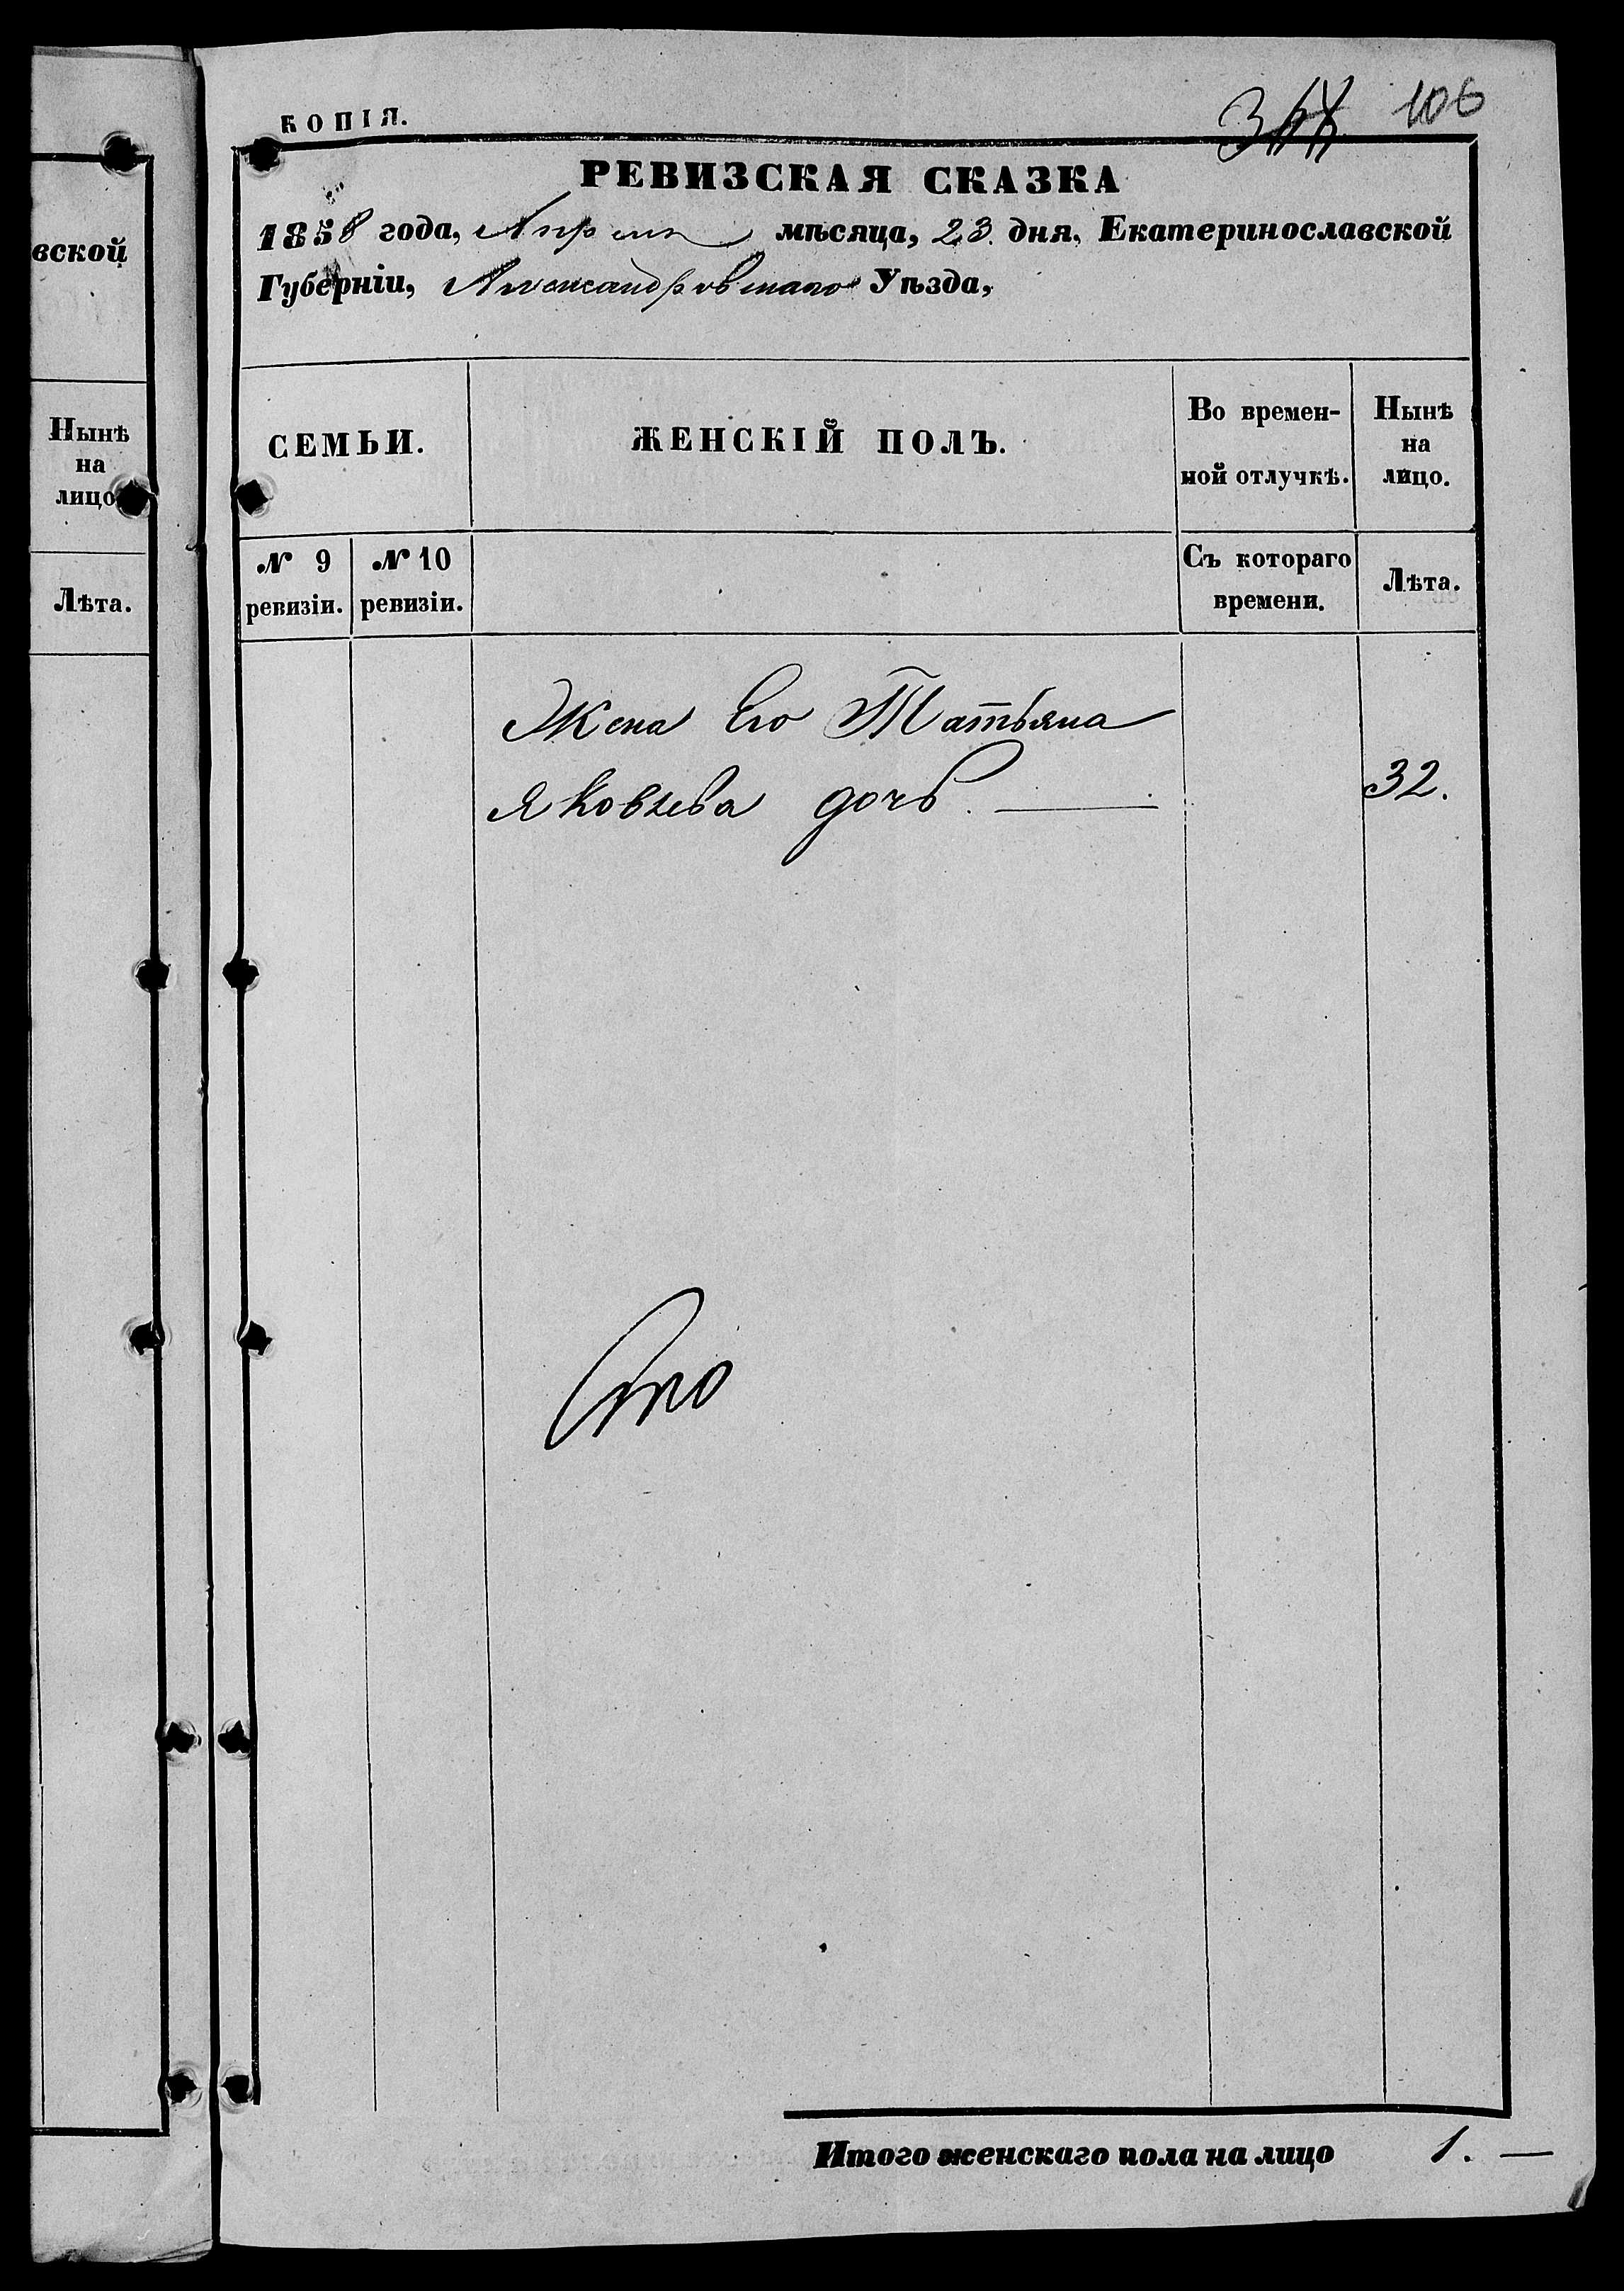 вской
Нынѣ
на
лицо
Лѣта.
КОПІЯ.
106
РЕВИЗСКАЯ СКАЗКА
1858 года, Апреля мѣсяца, 23. дня, Екатеринославской
Губерніи, Александровскаго Уѣзда,
СЕМЬИ.
ЖЕНСКІЙ ПОЛЪ.
Во времен-
ной отлучкѣ.
Нынѣ
на
лицо.
№ 9
ревизіи.
№ 10
ревизіи.
Съ котораго
времени.
Лѣта.
Жена Его Татьяна
Яковлева дочь. 32.
Итого женскаго пола на лицо 1. —